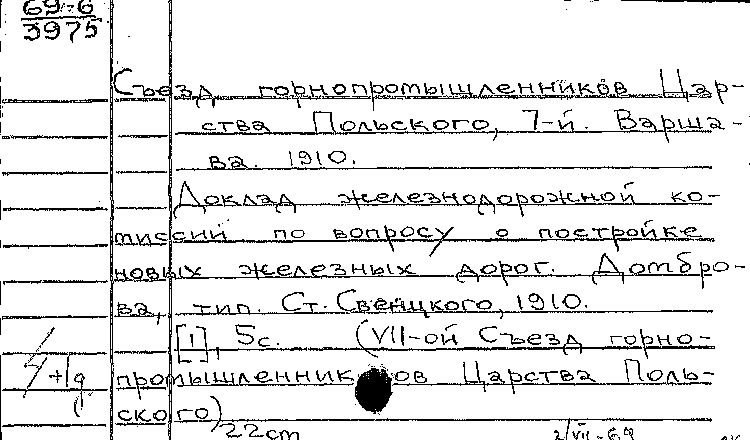 69-6
3975
Съезд горнопромышленников Цар-
ства Польского, 7-й. Варша-
ва. 1910.
Доклад железнодорожной ко-
миссии по вопросу о постройке
новых железных дорог. Домбро-
ва, тип. Ст. Свенцкого, 1910.
[1], 5с. (VII-ой Съезд горно-
+1д промышленников Царства Поль-
ского)
22см
2/VII-69